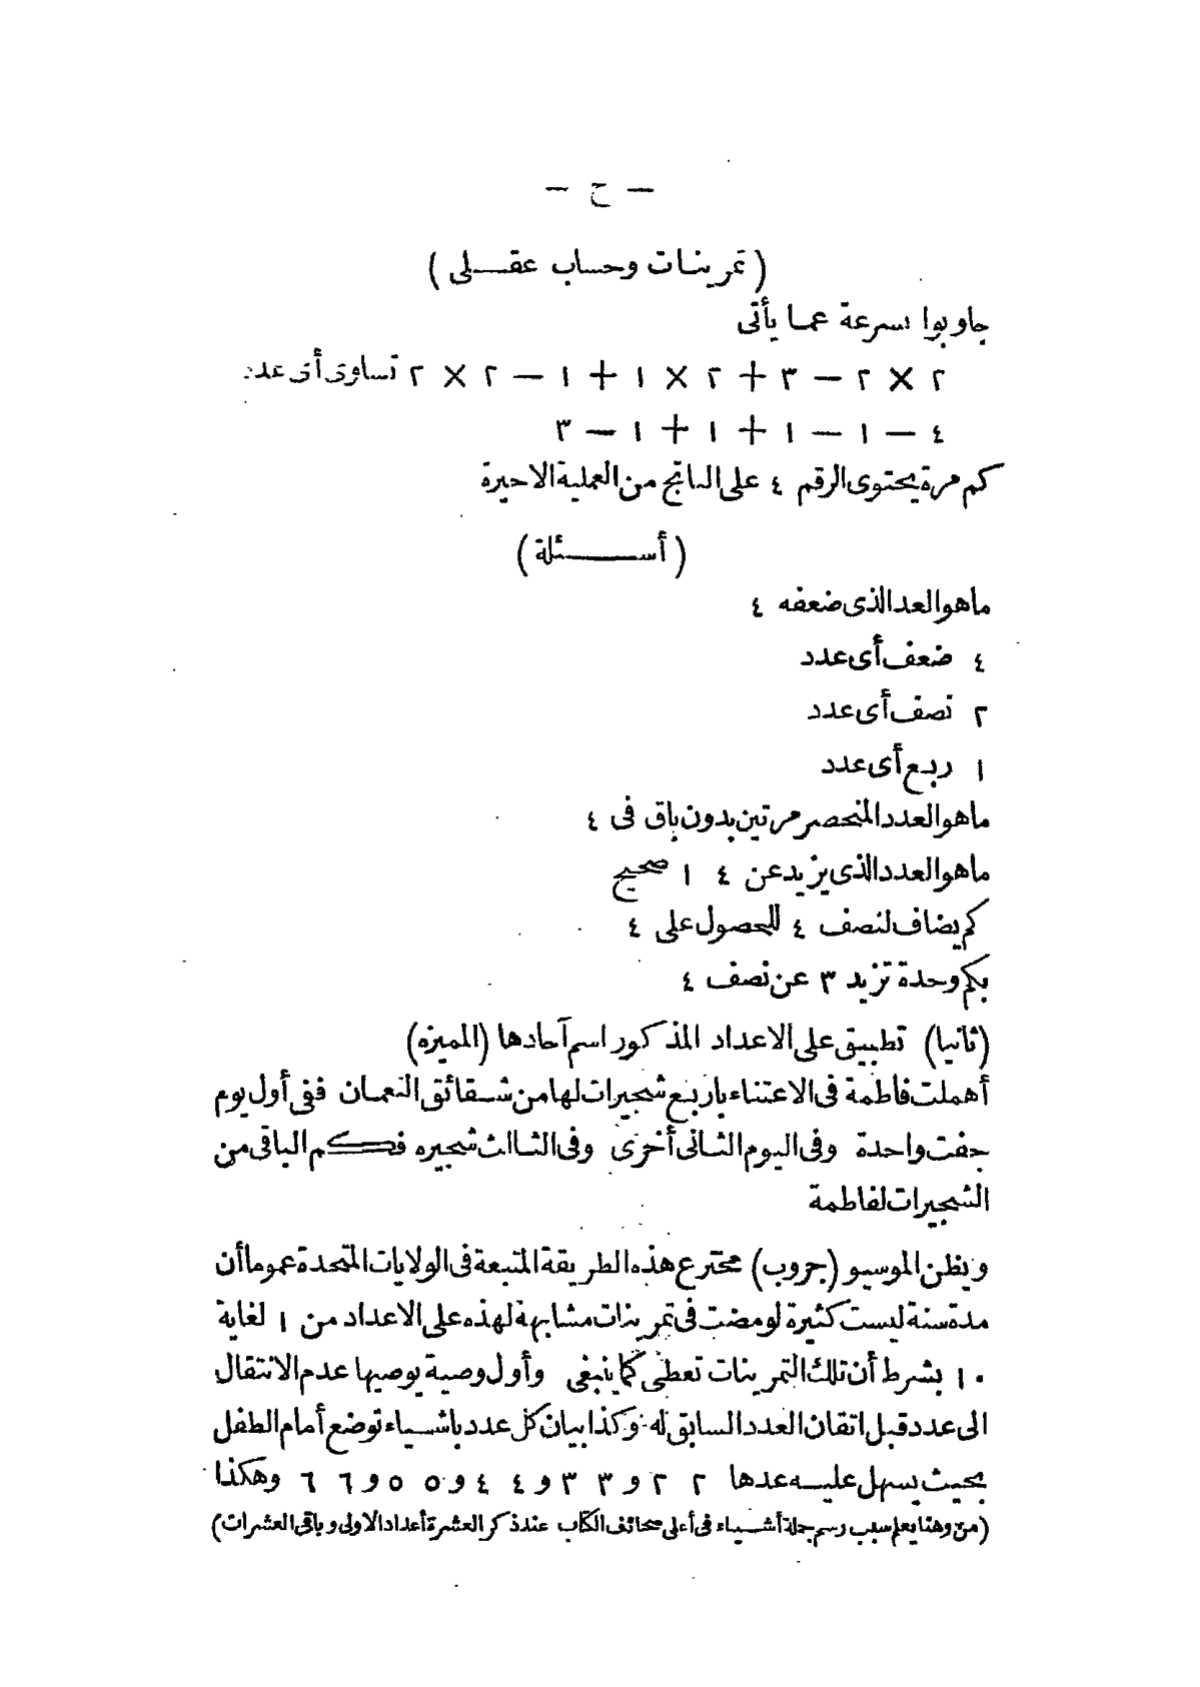 — ح —
(تمرينات وحساب عقلى)
جاوبوا بسرعة عما يأتى
٢ × ٢ — ٣ + ٢ × ١ + ١ — ٢ × ٢ تساوى أى عدد
٤ — ١ — ١ + ١ + ١ — ٣
كم مرة يحتوى الرقم ٤ على الناتج من العملية الاخيرة
(أسئلة)
ما هو العدد الذى ضعفه ٤
٤ ضعف أى عدد
٢ نصف أى عدد
١ ربع أى عدد
ما هو العدد المنحصر مرتين بدون باق فى ٤
ما هو العدد الذى يزيد عن ٤ ١ صحيح
كم يضاف لنصف ٤ للحصول على ٤
بكم وحدة تزيد ٣ عن نصف ٤
(ثانيا) تطبيق على الاعداد المذكور اسم آحادها (المميزه)
أهملت فاطمة فى الاعتناء باربع شجيرات لها من شقائق النعمان ففى أول يوم
جفت واحدة وفى اليوم الثانى أخرى وفى الثالث شجيره فكم الباقى من
الشجيرات لفاطمة
ويظن الموسيو (جروب) مخترع هذه الطريقة المتبعة فى الولايات المتحدة عموما أن
مدة سنة ليست كثيرة لو مضت فى تمرينات مشابهة لهذه على الاعداد من ١ لغاية
١٠ بشرط أن تلك التمرينات تعطى كما ينبغى وأول وصية يوصيها عدم الانتقال
الى عدد قبل اتقان العدد السابق له وكذا بيان كل عدد باشياء توضع أمام الطفل
بحيث يسهل عليه عدها ٢ ٢ و ٣ ٣ و ٤ ٤ و ٥ ٥ و ٦ ٦ وهكذا
(من وهنا يعلم سبب رسم جملة أشياء فى أعلى صحائف الكتاب عند ذكر العشرة أعداد الاولى وباقى العشرات)